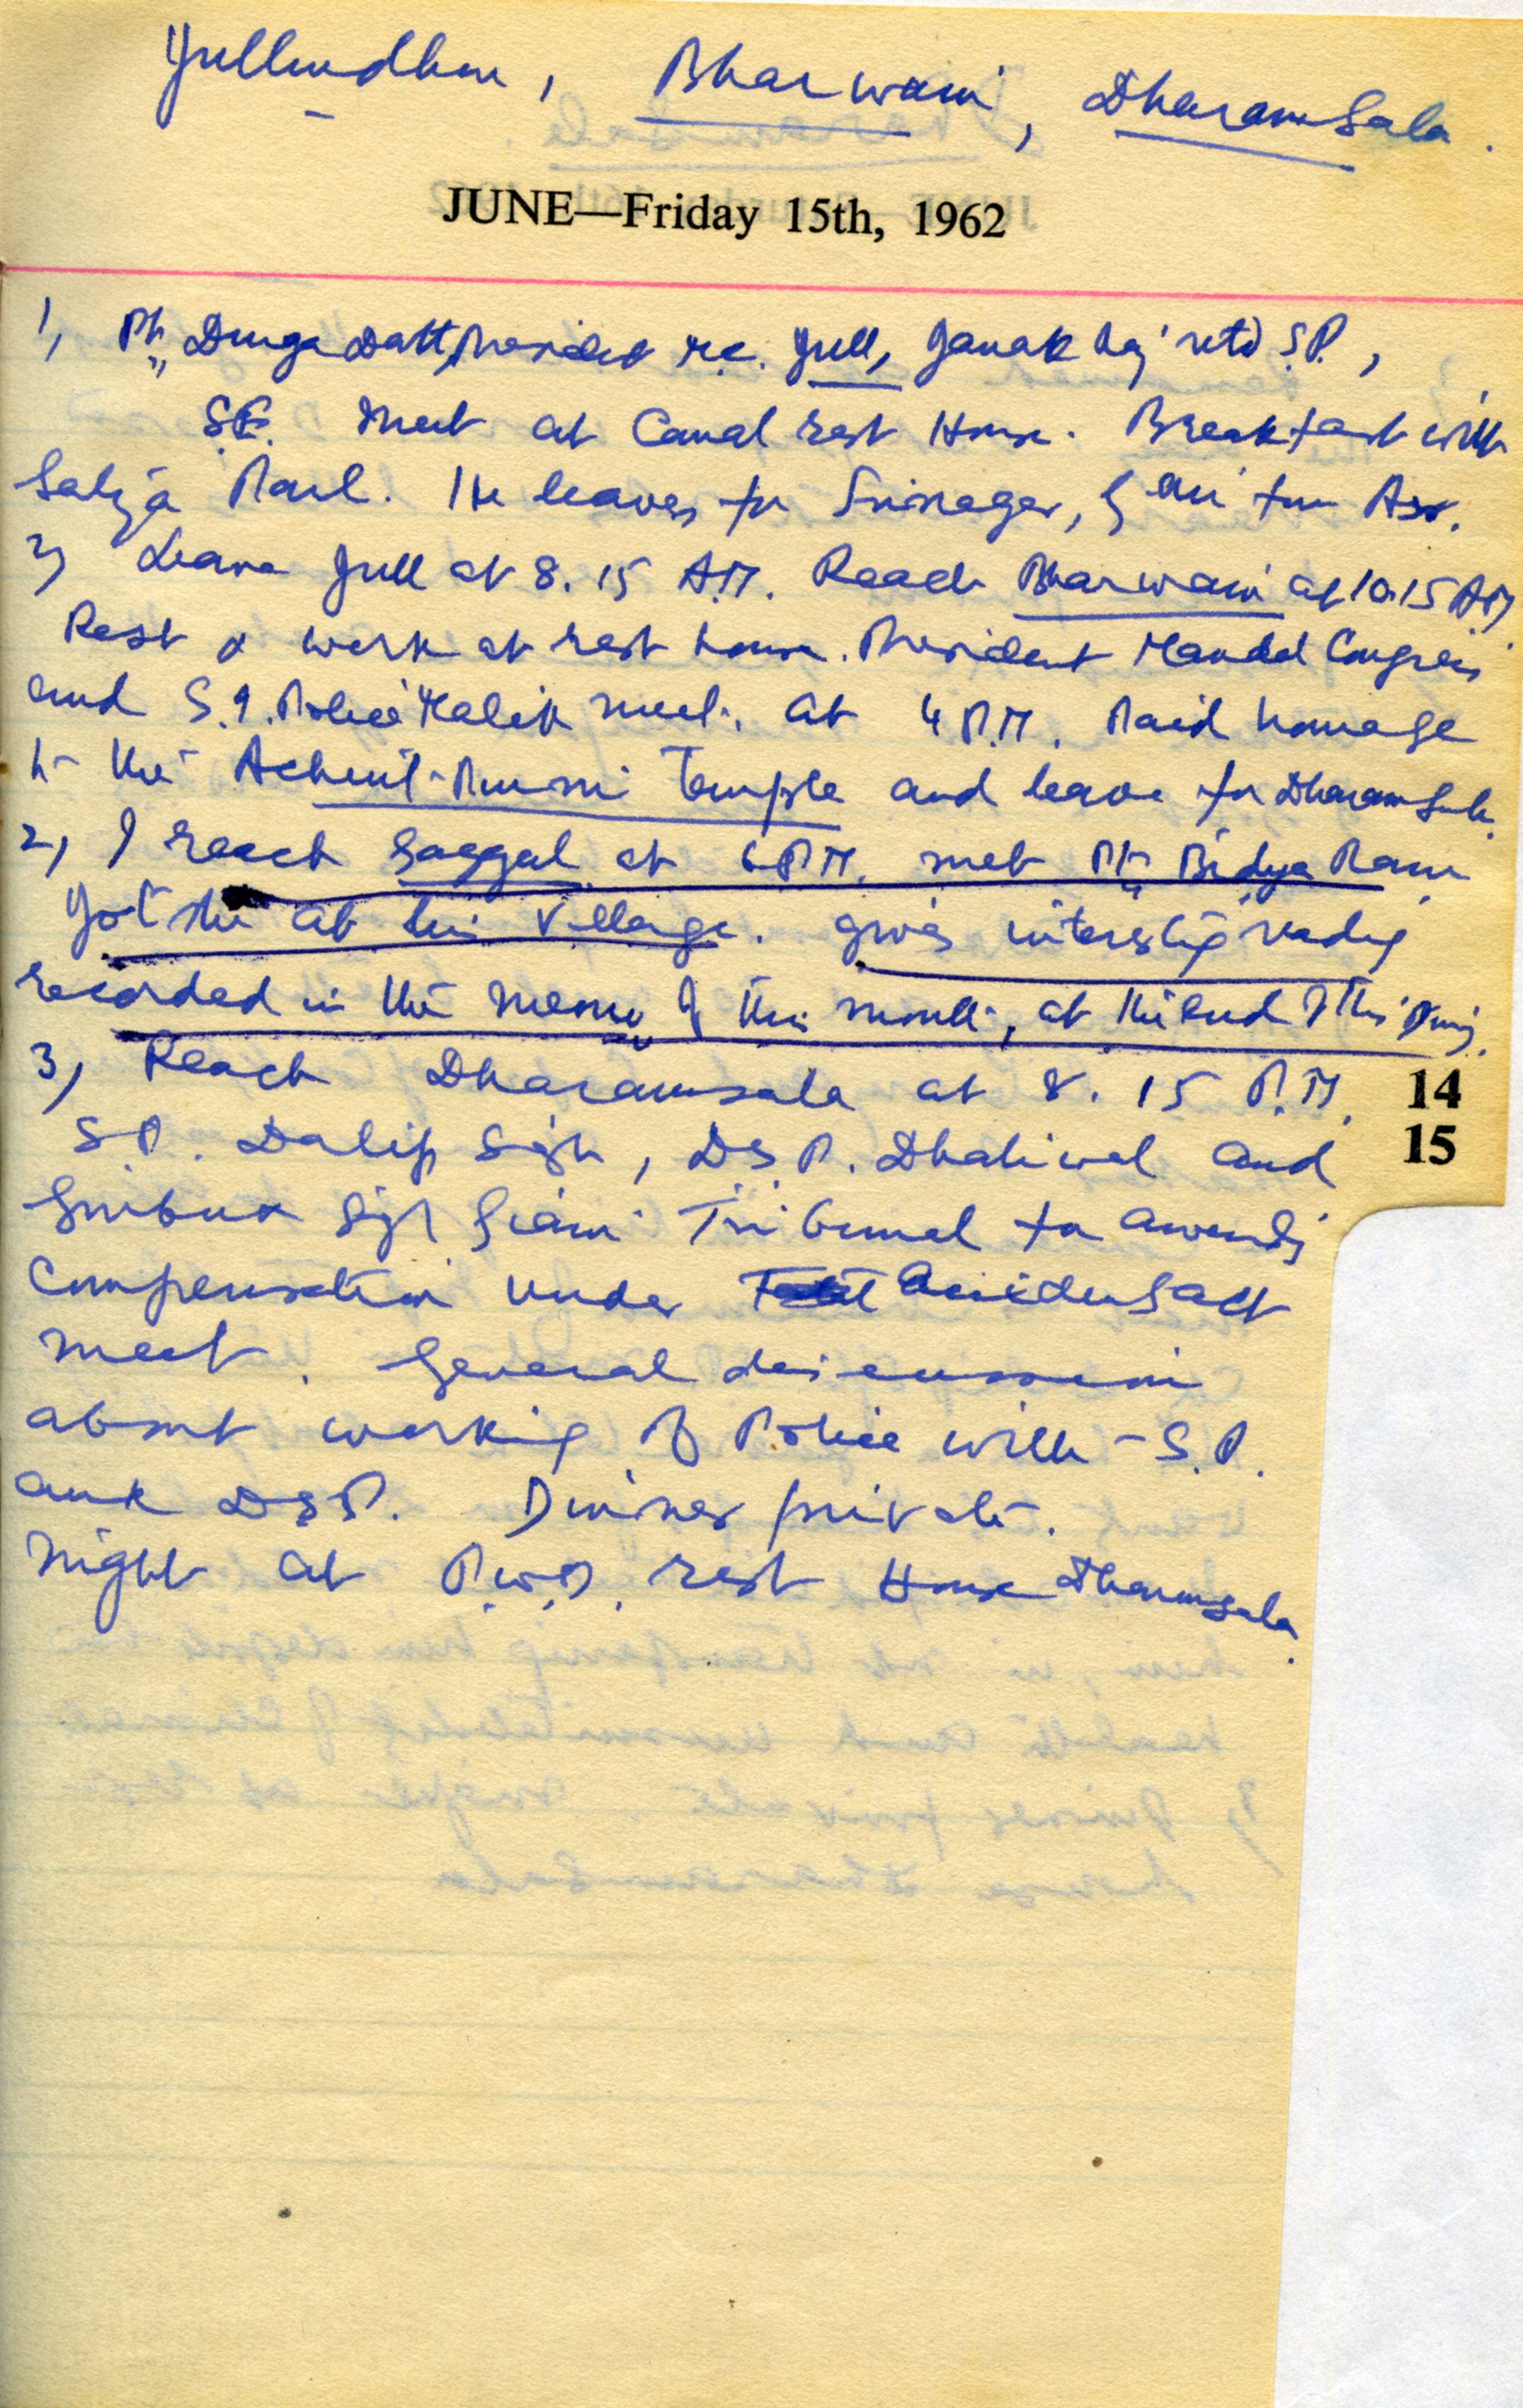 Jullundhur, Bharwain, Dharamsala.
JUNE—Friday 15th, 1962
1, Pt. Durga Datt, President M.C. Jull, Janak Raj retd S.P.,
S.E. Meet at Canal rest House. Breakfast with
Satya Paul. He leaves for Srinagar, & Om for Asr.
2, Leave Jull at 8.15 A.M. Reach Bharwain at 10.15 AM
Rest & work at rest house. President Mandal Congress
and S.I. Police Malik meet. At 4 P.M. Paid homage
to the Temple and leave for Dharamsala.
2, I reach Saggal at 6 P.M. met Pt. Bidya Ram
at his village. gives interesting reading
recorded in the memo of this month, at the end of this
3, Reach Dharamsala at 8.15 P.M. 14
S P. Dalip Singh, D.S.P. Dhaliwal and 15
Gurbux Singh Giani Tribunal for awarding
Compensation under Accidents Act
meet. General discussion
about working of Police with S.P.
and D.S.P. Dinner private.
Night at P.W.D. rest House Dharamsala.